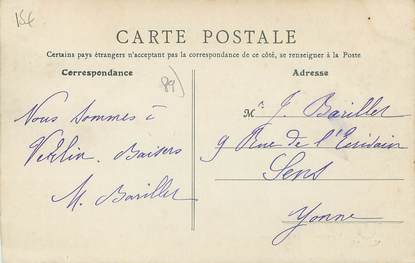 154
CARTE POSTALE
Certains pays étrangers n'acceptant pas la correspondance de ce côté, se renseigner à la Poste
Correspondance
Adresse
89
Nous sommes à
Baisers
M. Barillet
Mr. J. Barillet
9 Rue de l'Ecrivain
Sens
Yonne